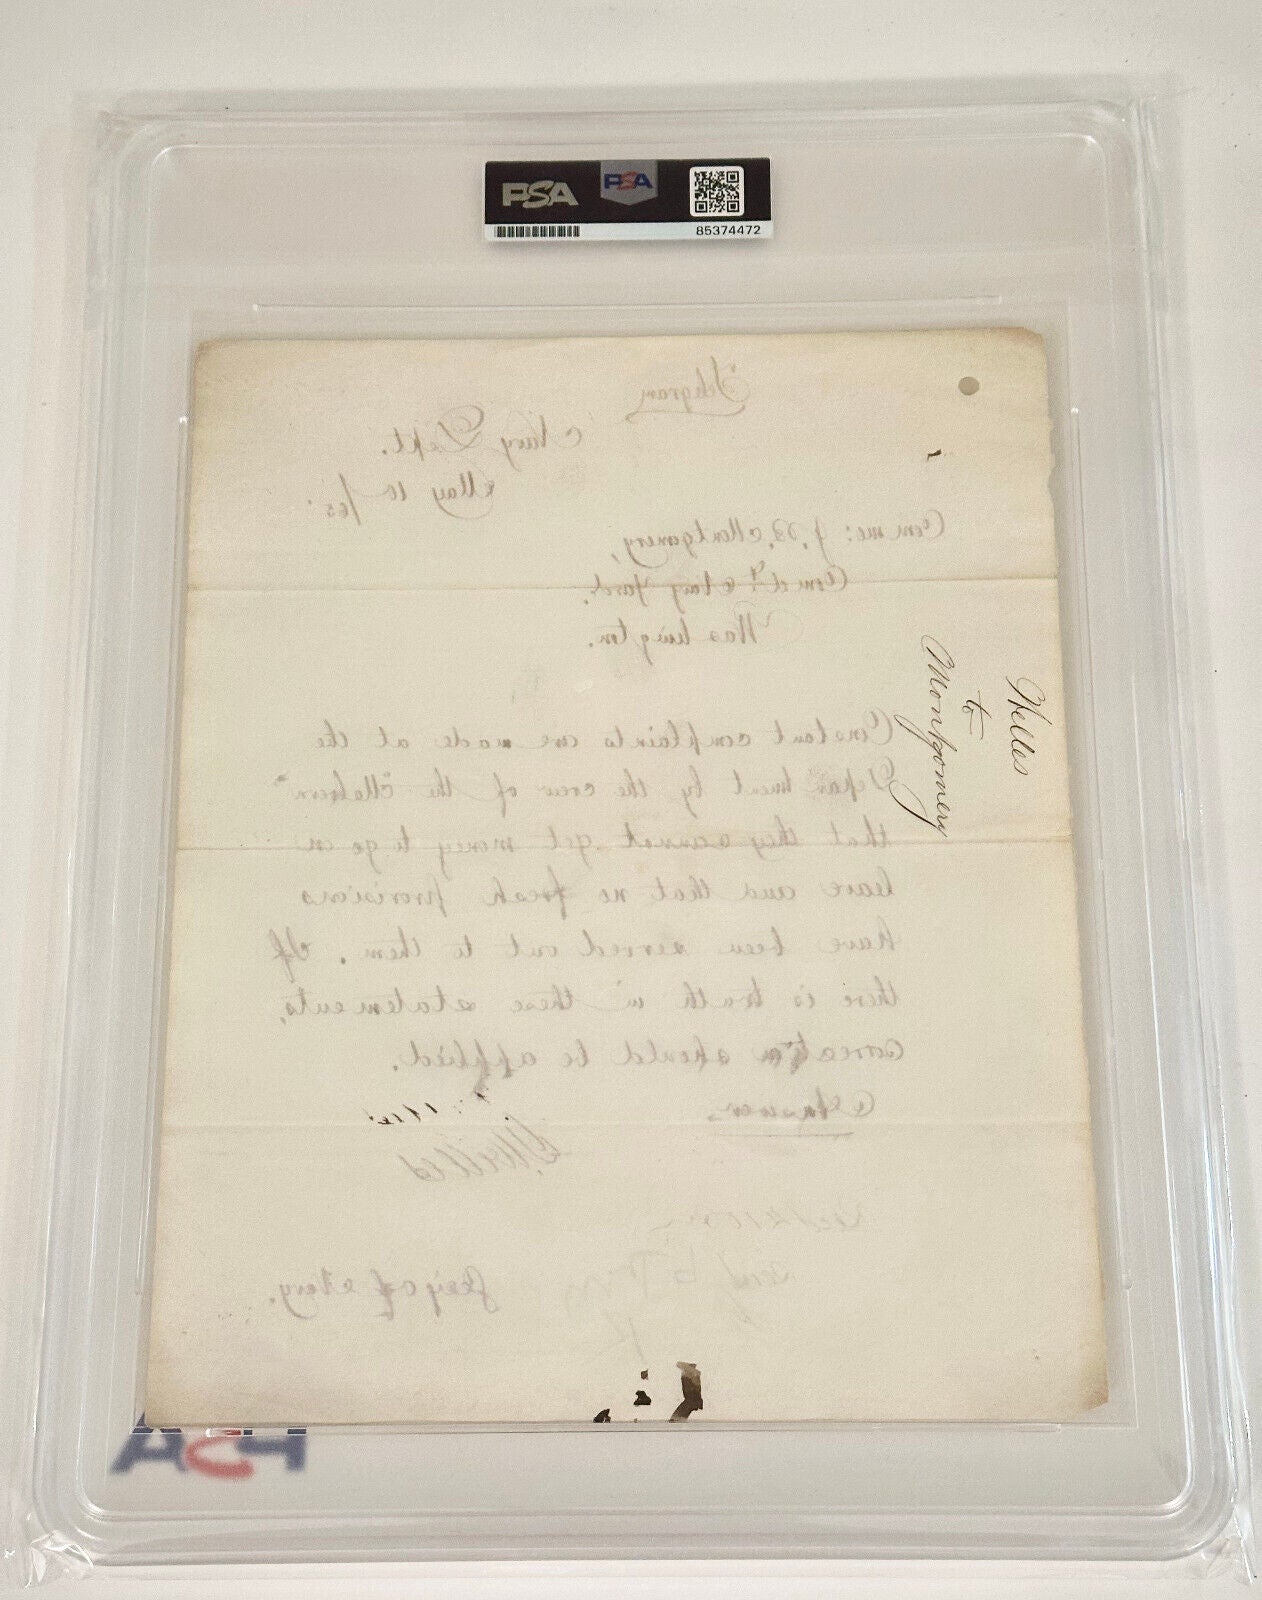 PSA
PSA
85374472
Telegram
Navy Dept.
May 10 /65.
Comme: J. B. Montgomery,
Comdt. Navy Yard.
Washington.
Welles
to
Montgomery
Constant complaints are made at the
Department by the crew of the "Mahern"
that they cannot get money to go on
leave and that no fresh provisions
have been served out to them. If
there is truth in these statements,
correction should be applied.
Answer
G. Welles
Secy of Navy.
PSA